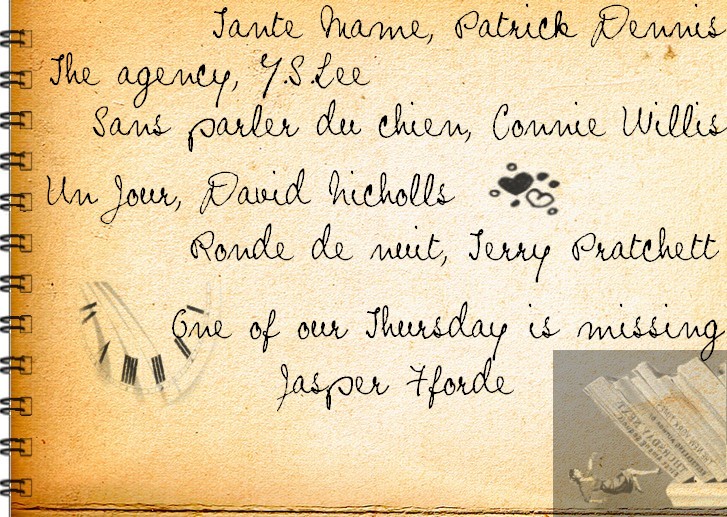 Tante Mame, Patrick Dennis
The agency, Y.S.Lee
Sans parler du chien, Connie Willis
Un Jour, David Nicholls
Ronde de nuit, Terry Pratchett
One of our Thursday is missing
Jasper Fforde